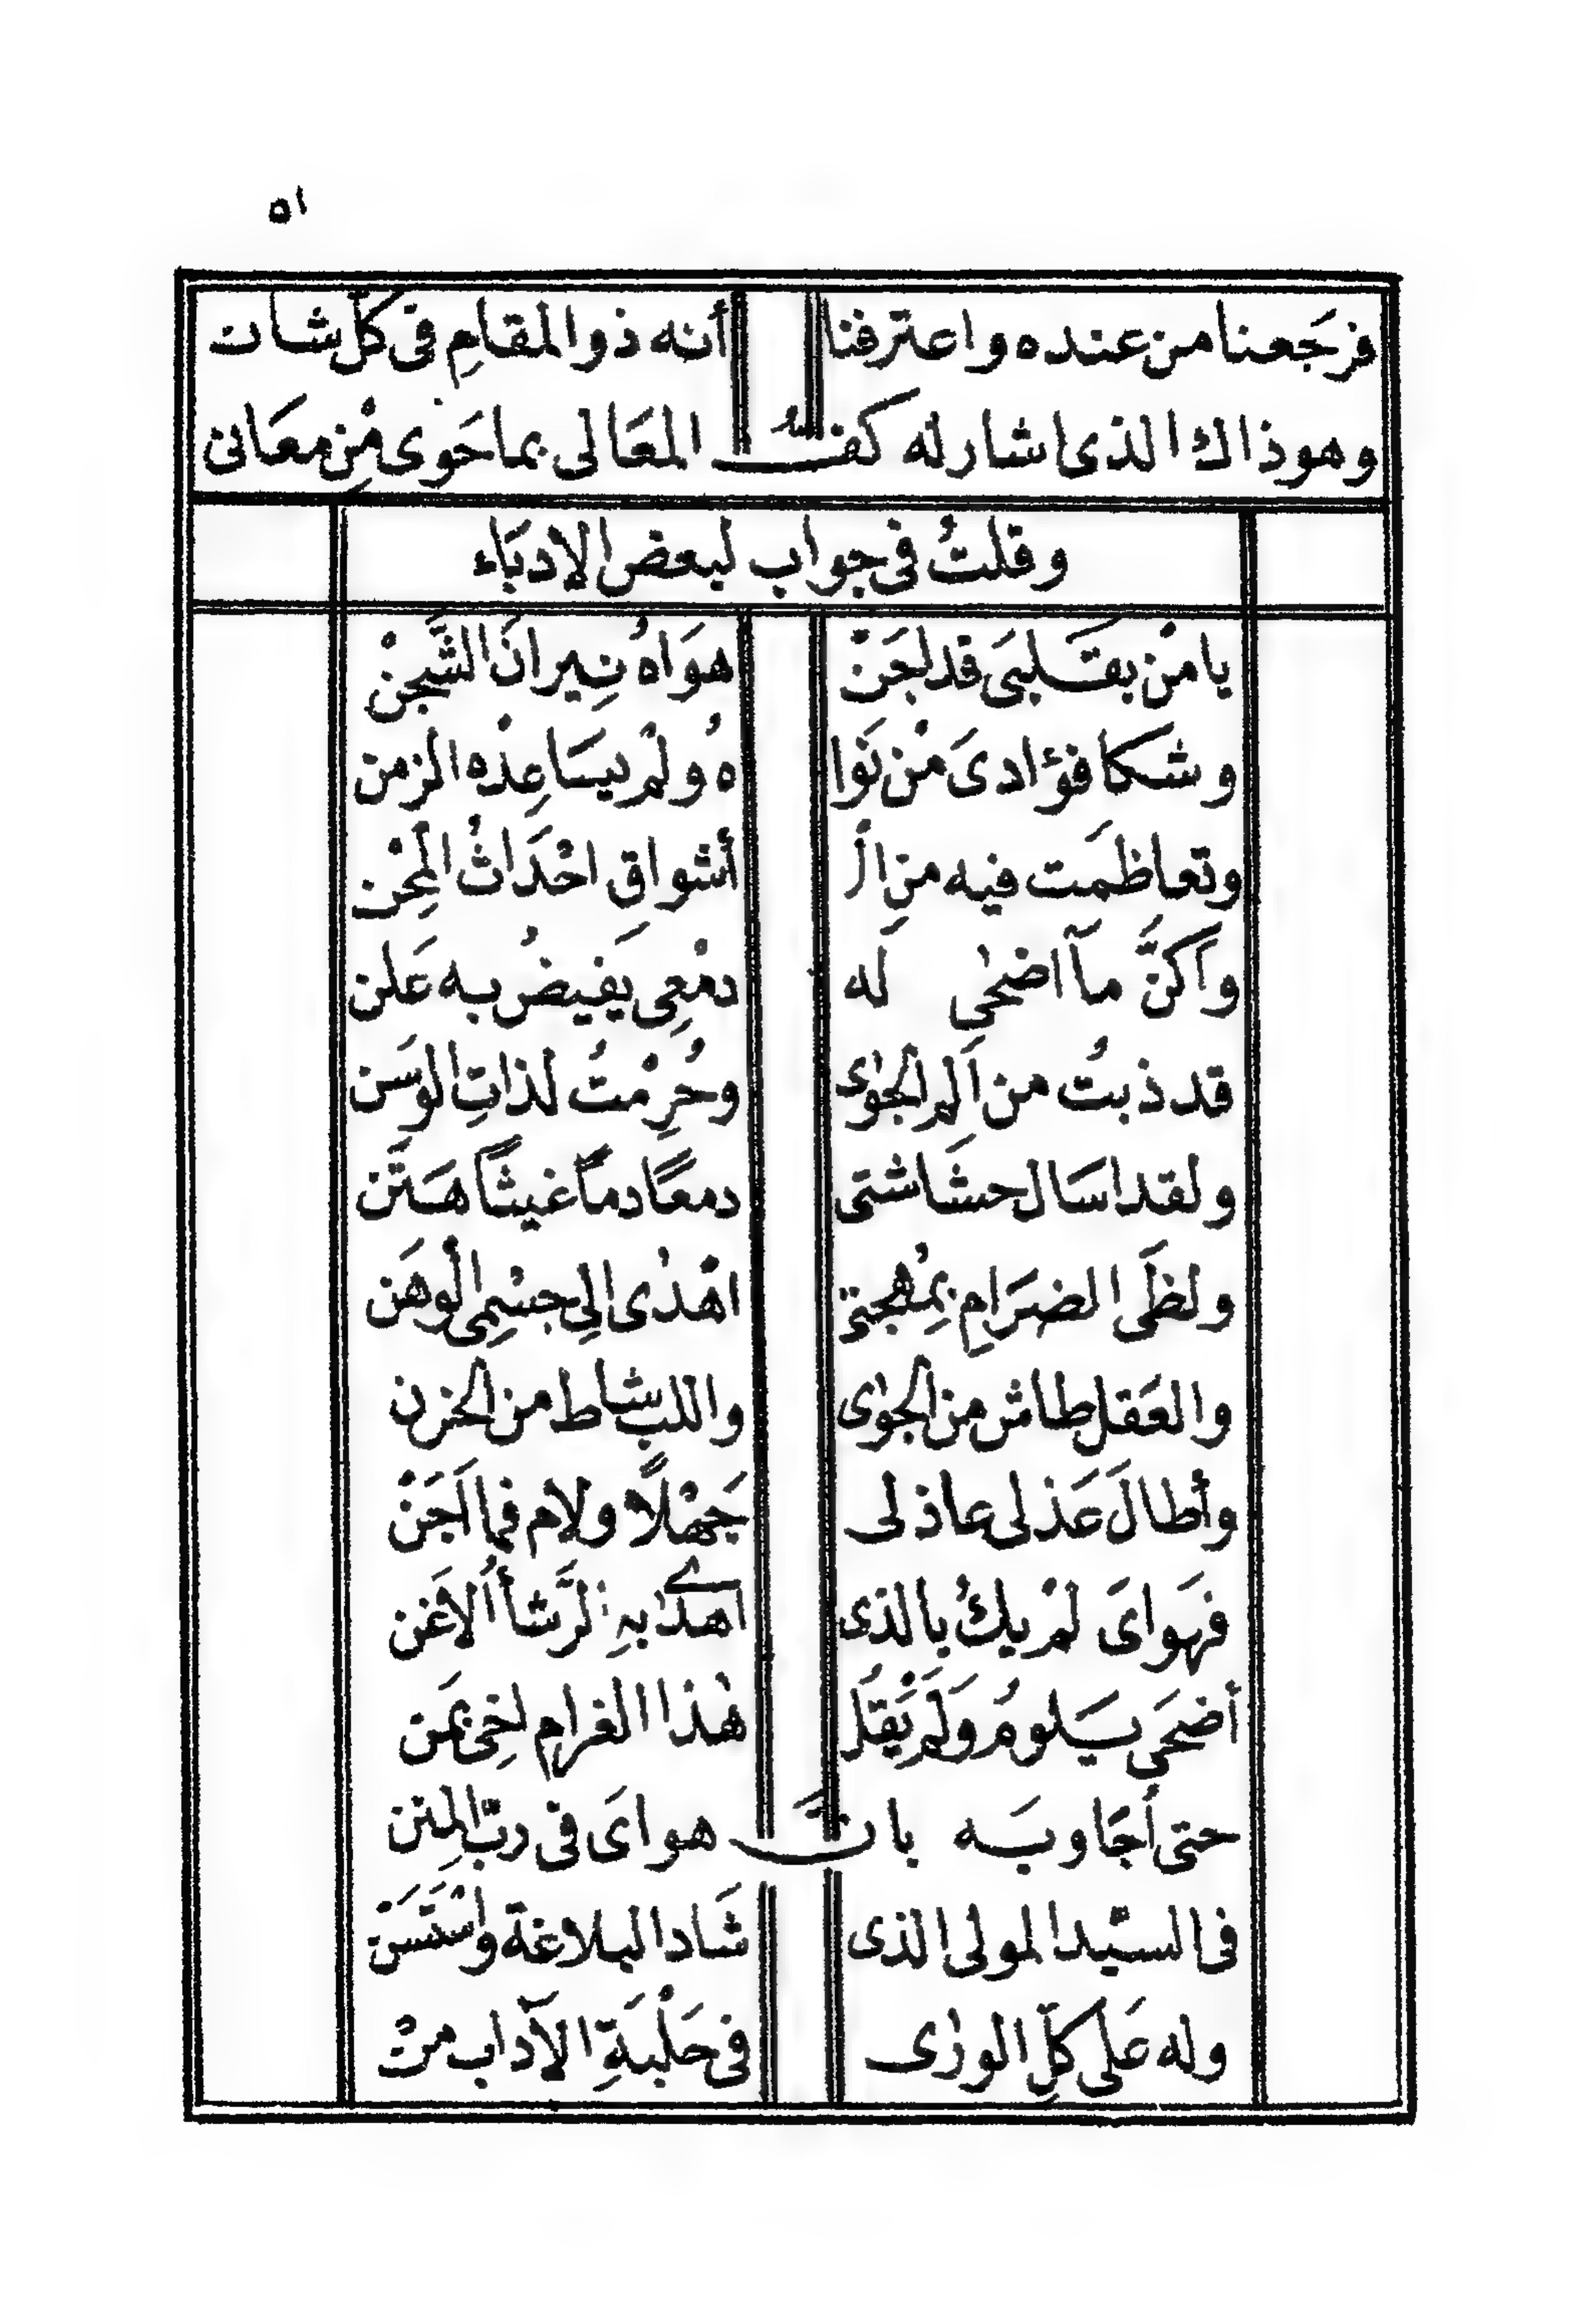 ٥١
فرجَعنا من عنده واعترفنا أنه ذو المقامِ في كلّ شان
وهو ذاك الذى اشار له كفّ المعَالى بما حَوى مِنْ معَانى
وقلتُ فى جواب لبعض الادبَاء
يا منْ بقَلبىَ قد لجَنْ هوَاهُ نِيرانَ الشَّجنْ
وشكا فؤادىَ منْ نَوا هُ ولمْ يسَاعِدْه الزمن
وتعاظمَت فيه منِ الْ أشواقِ احْدَاثُ المِحْن
وأكنَّ مآ اضحٰى له دمْعِى يَفيضُ به عَلن
قد ذبتُ من ألم الجوٰى وحُرِمْتُ لذاتِ الوسَن
ولقد اسَال حشَاشتى دمعًا دمًا غيثًا هتَن
ولظَى الضرَامِ بمُهجتى اهْدٰى الى جسْمِى الوهَن
والعَقل طاش من الجوٰى واللب شاط من الحزن
وأطالَ عَذلى عاذلى جَهْلًا ولام فما أجَنْ
فهَواىَ لمْ يكُ بالذى اهدٰى به الرَّشأُ الاغَن
أضحَى يَلومُ ولَم يَقُلْ هٰذا الغرام لخِىْ بمَن
حتى أجَاوبَه بانَّ هواىَ فى ربّ المِنن
فى السيّد المولى الذى شَاد البلاغة واسْتَسَنْ
وله عَلى كلِّ الورٰى فى حَلْبَةِ الآداب منْ